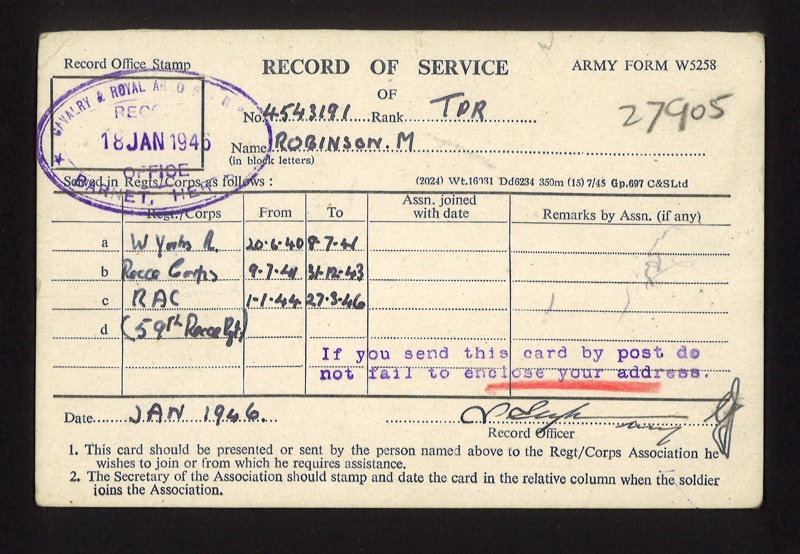 Record Office Stamp
RECORD OF SERVICE
ARMY FORM W5258
OF
27905
No. 4543191 Rank TPR
CAVALRY & ROYAL
RECO
18 JAN 1946
OFFICE
BARNET, HE
Name ROBINSON. M
(in block letters)
Served in Regts/Corps as follows :
(2024) Wt.16031 Dd6234 350m (15) 7/45 Gp.697 C&SLtd
Regt./Corps From To Assn. joined with date Remarks by Assn. (if any)
a W Yorks R. 20·6·40 8·7·41
b Recce Corps 9·7·41 31·12·43
c RAC 1·1·44 27·3·46
d (59th Recce Rgt)
If you send this card by post do
not fail to enclose your address.
Date JAN 1946.
Record Officer
1. This card should be presented or sent by the person named above to the Regt/Corps Association he
wishes to join or from which he requires assistance.
2. The Secretary of the Association should stamp and date the card in the relative column when the soldier
joins the Association.